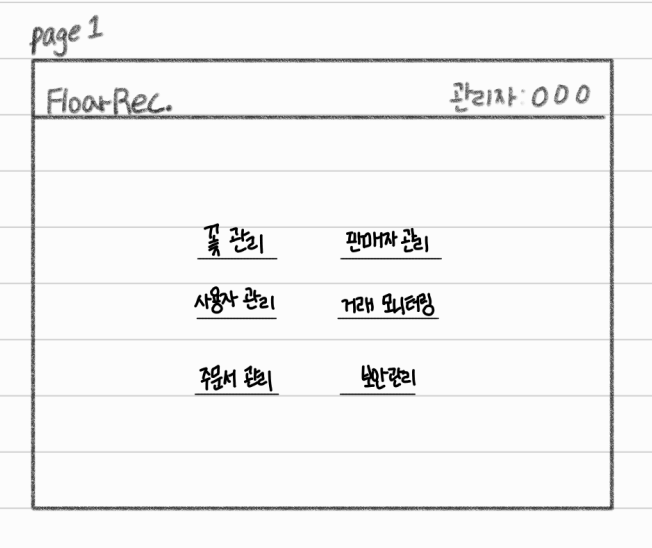 page 1
FloarRec.
관리자 : OOO
꽃 관리
판매자 관리
사용자 관리
거래 모니터링
주문서 관리
보안관리